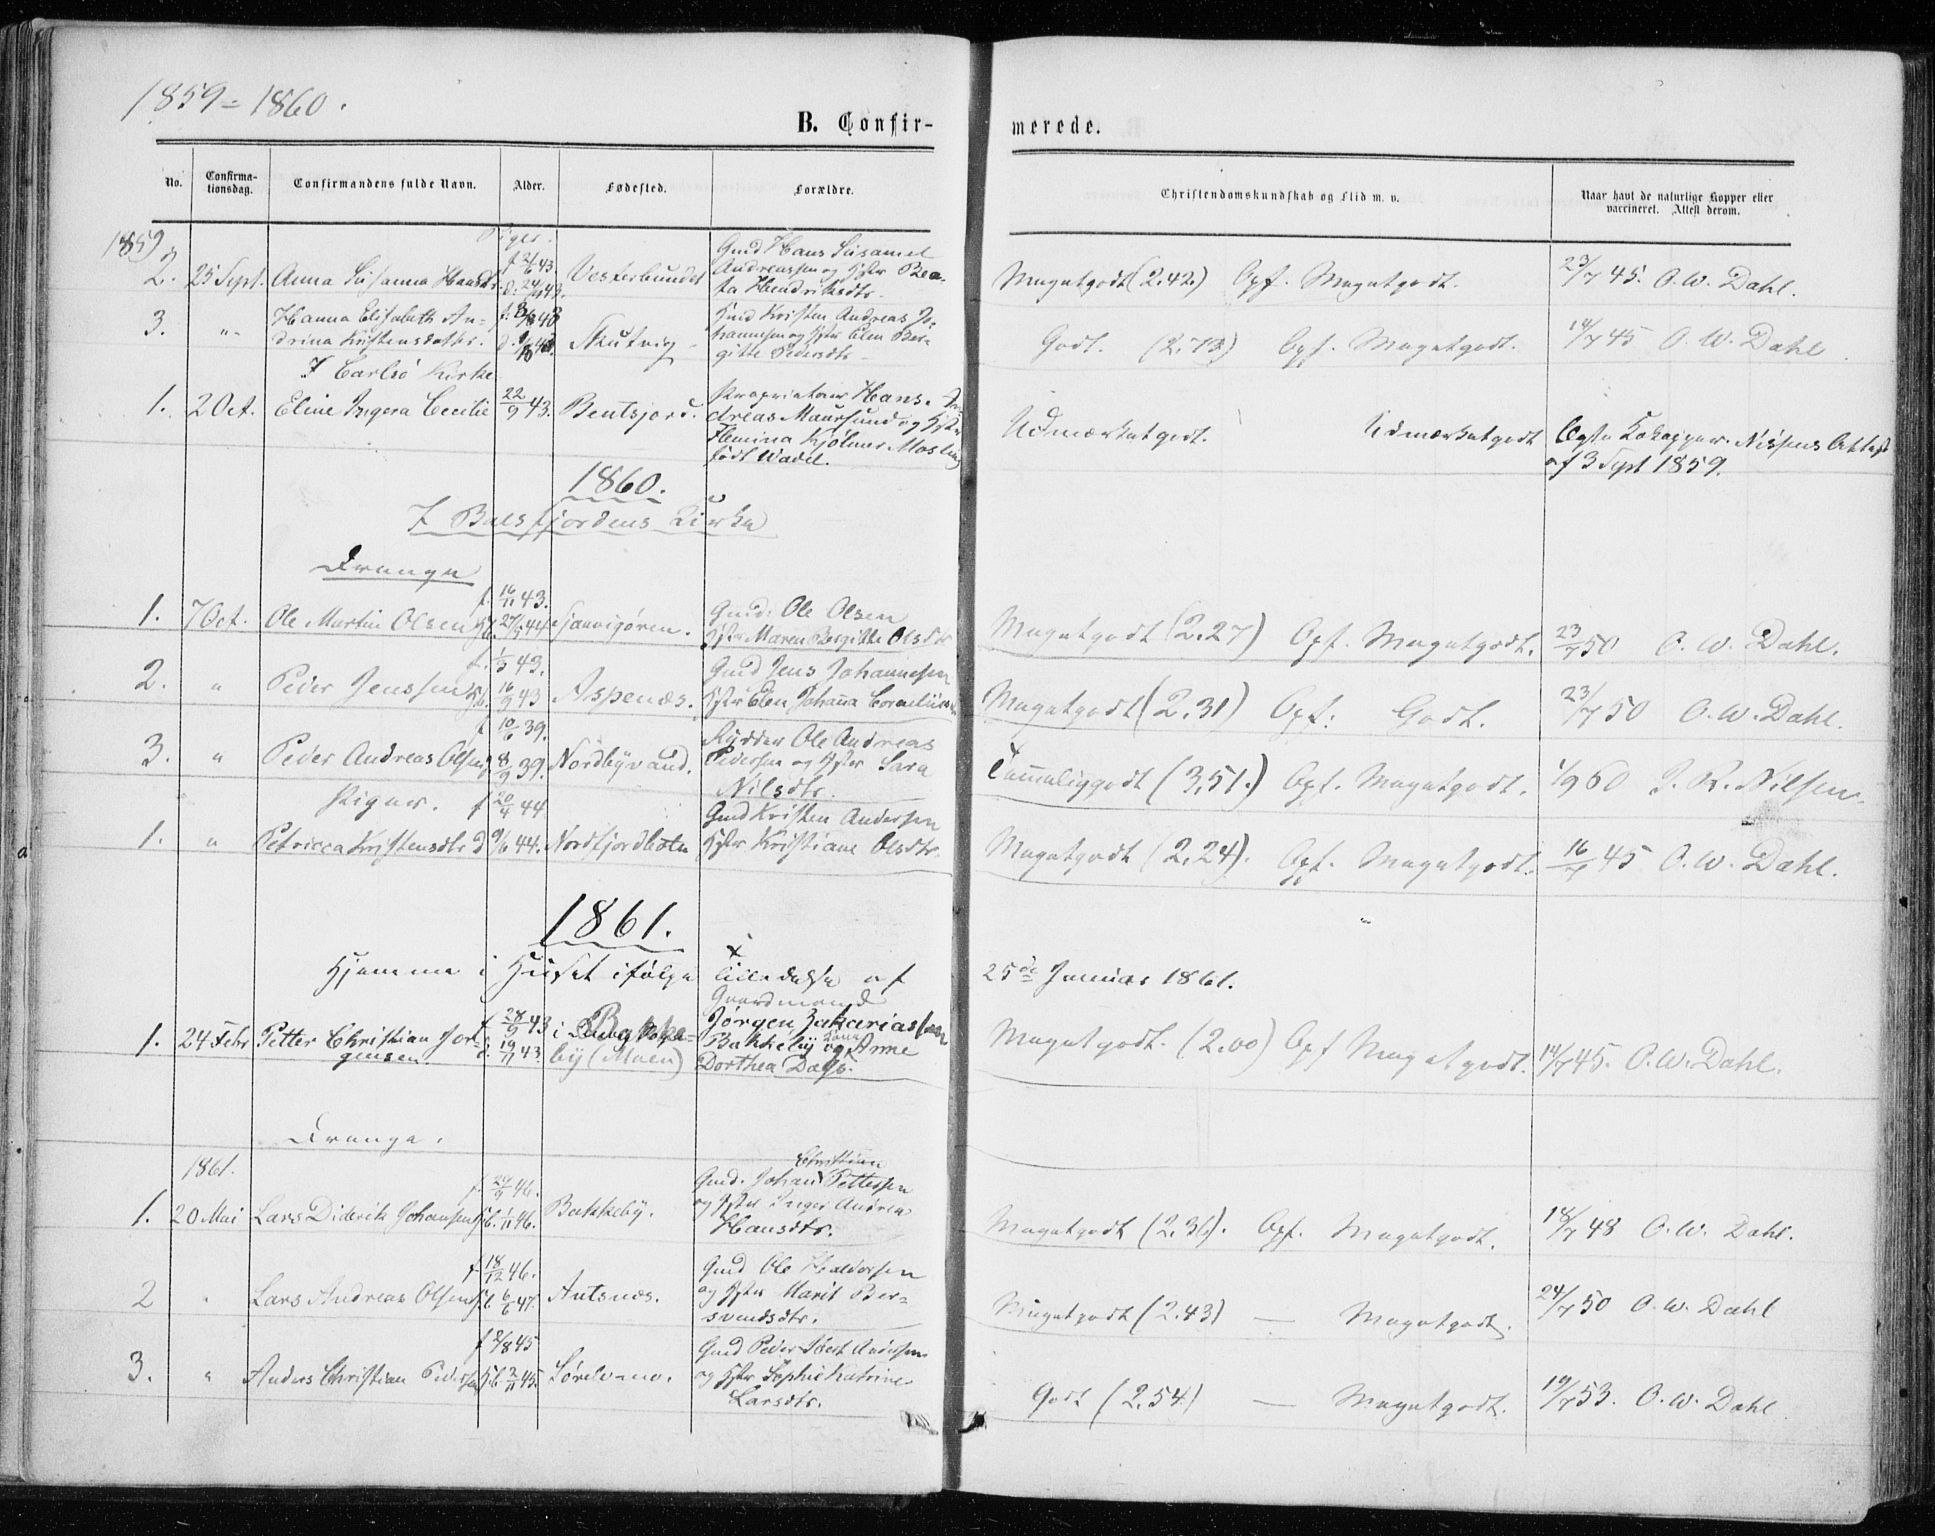 1859-1860.
B. Confir-
merede.
No.
Confirma-
tionsdag.
Confirmandens fulde Navn.
Alder.
Fødested.
Forældre.
Christendomskundskab og Flid m. v.
Naar havt de naturlige Kopper eller
vaccineret. Attest derom.
1859
Piger.
2. 25 Sept. Anna Susanna Hansdtr. f. 21/6 43. Vesterbundet
Gmd Hans Susamel
Andreassen og Hstr Bea-
ta Hendriksdtr.
Megetgodt (2.42.) Opf. Megetgodt. 23/7 45. O. W. Dahl.
3. " Hanna Elisabeth An-
drina Kristensdatter. Skutvig
Gmd Kristen Andreas Jo-
hannesen og Hstr Elen Ber-
gitte Pedersdtr
Godt. (2.73) Opf. Megetgodt. 14/7 45 O. W. Dahl.
I Carlsø Kirke
1. 2 Oct. Eline Ingera Cecilie 22/9 43. Bentsjord.
Proprietair Hans. An-
dreas Maursund og Hstr
Flemina Kjølmer Mosling
født Wadel.
Udmærketgodt. Udmærketgodt
Ægte Kokopper. Nissens Attest
af 3 Sept 1859.
1860.
I Balsfjordens Kirke
Drenge
1. 7 Oct. Ole Martin Olsen f. 16/11 43. 27/5 44 Sjaavigøren.
Gmd. Ole Olsen
Hstr Maren Bergitte Olsdtr
Megetgodt (2.27) Opf. Megetgodt. 23/7 50 O. W. Dahl.
2. " Peder Jenssen f. 1/5 43. 16/9 43 Aspenæs.
Gmd Jens Johannesen
Hstr Elen Johanna Corneliusdtr
Megetgodt (2.31) Opf: Godt. 23/7 50 O. W. Dahl.
3. " Peder Andreas Olsen f 10/6 39. 8/9 39. Nordbyvand.
Rydder Ole Andreas
Pedersen og Hstr Sara
Nilsdtr.
Temmeliggodt (3.51.) Opf. Megetgodt. 1/9 60 J. R. Nilsen
Piger.
1. " Petricca Kristensdtr f 20/4 44 d 9/6 44. Nordfjordbotn
Gmd Kristen Andersen
Hstr Kristiane Olsdtr.
Megetgodt (2.24). Opf. Megetgodt. 16/7 45 O. W. Dahl.
1861.
Hjemme i Huset ifølge Tilladelse af 25de Januar 1861.
1. 24 Febr Petter Christian Jør-
gensen f 28/9 43 d. 19/11 43. i Bakke-
by (Moen)
Gaardmand
Jørgen Zakariassen
Bakkeby og Kone Anne
Dorthea Dass.
Megetgodt. (2.00) Opf Megetgodt. 14/7 45. O. W. Dahl.
Drenge.
1861.
1. 20 Mai Lars Diderik Johansen f. 29/9 46. 1/11 46. Bakkeby.
Gmd. Johan Christian Pettersen
og Hstr Inger Andrea
Hansdtr.
Megetgodt (2.36). Opf. Megetgodt. 18/7 48 O. W. Dahl.
2 " Lars Andreas Olsen f 18/12 46. 6/6 47. Antsnæs.
Gmd Ole Haldorsen
og Hstr Marit Ber-
svendsdtr.
Megetgodt (2.43) — Megetgodt. 24/7 50 O. W. Dahl
3. " Anders Christian Pedersen f 2/8 45 2/11 45. Sørelvmo.
Gmd Peder Andersen
og Hstr Sophie Katrine
Larsdtr.
Godt (2.54) — Megetgodt. 19/7 53. O. W. Dahl